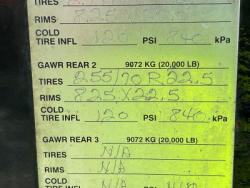 TIRES
RIMS 825
COLD
TIRE INFL 120 PSI 840 kPa
GAWR REAR 2 9072 KG (20,000 LB)
TIRES 255/70 R 22.5
RIMS 825 X 22.5
COLD
TIRE INFL 120 PSI 840 kPa
GAWR REAR 3 9072 KG (20,000 LB)
TIRES N/A
RIMS N/A
COLD
TIRE INFL N/A PSI N/A kPa